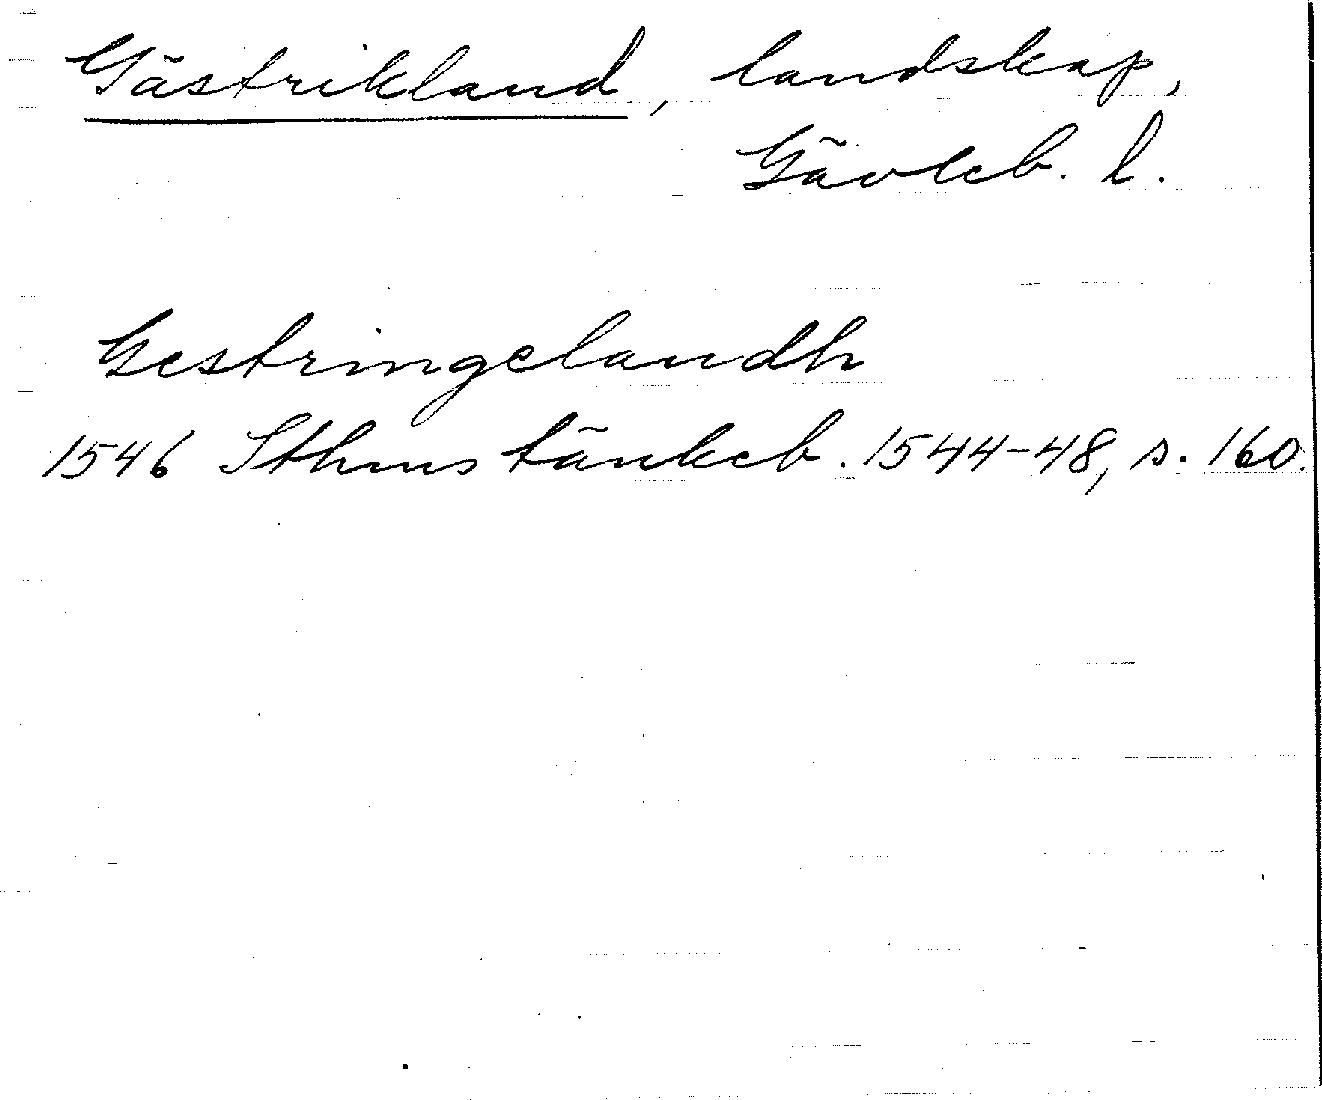 Gästrikland, landskap,
Gävleb. l.
Gestringelandh
1546 Sthms tänkeb. 1544-48, s. 160.